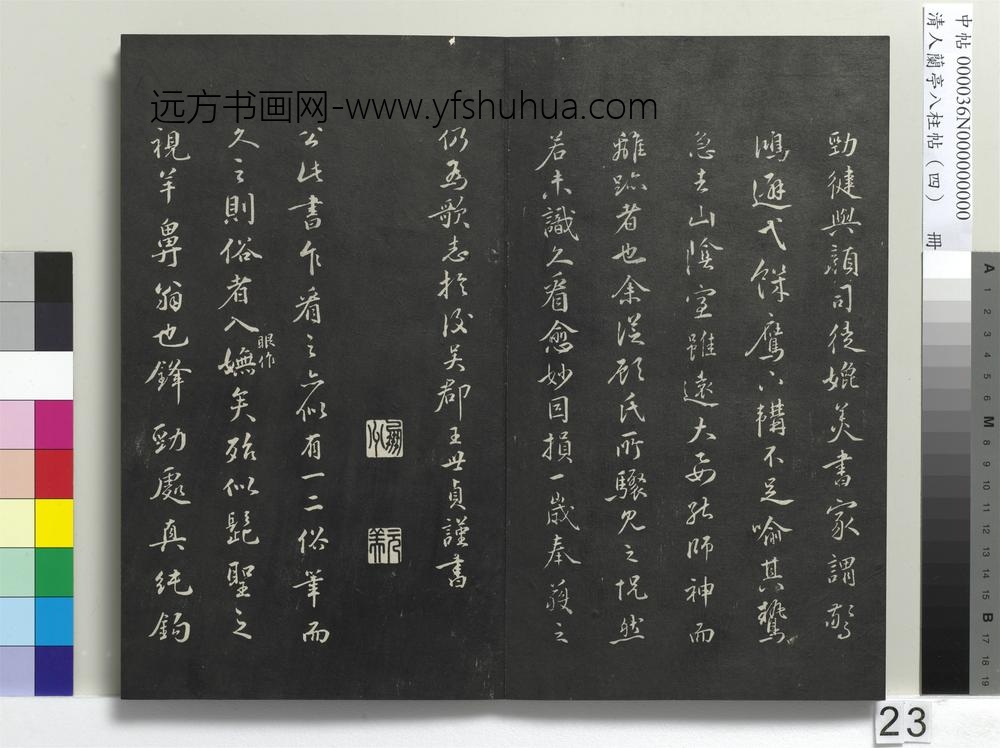 勁健與顏司徒媲美書家謂驚
鴻避弋饑鷹下韝不足喻其鷙
急去山陰室雖遠大要能師神而
離跡者也余從顧氏所驟見之恍然
若未識久看愈妙因損一歲奉獲之
仍為歌志於後吳郡王世貞謹書
公此書乍看之亦似有一二俗筆而
久之則俗者入眼作嫵矣殆似髡聖之
視羊鼻翁也鋒勁處真純鉤
远方书画网-www.yfshuhua.com
中帖000036N000000000
清人蘭亭八柱帖（四） 冊
23
A 1 2 3 4 5 6 M 8 9 10 11 12 13 14 15 B 17 18 19